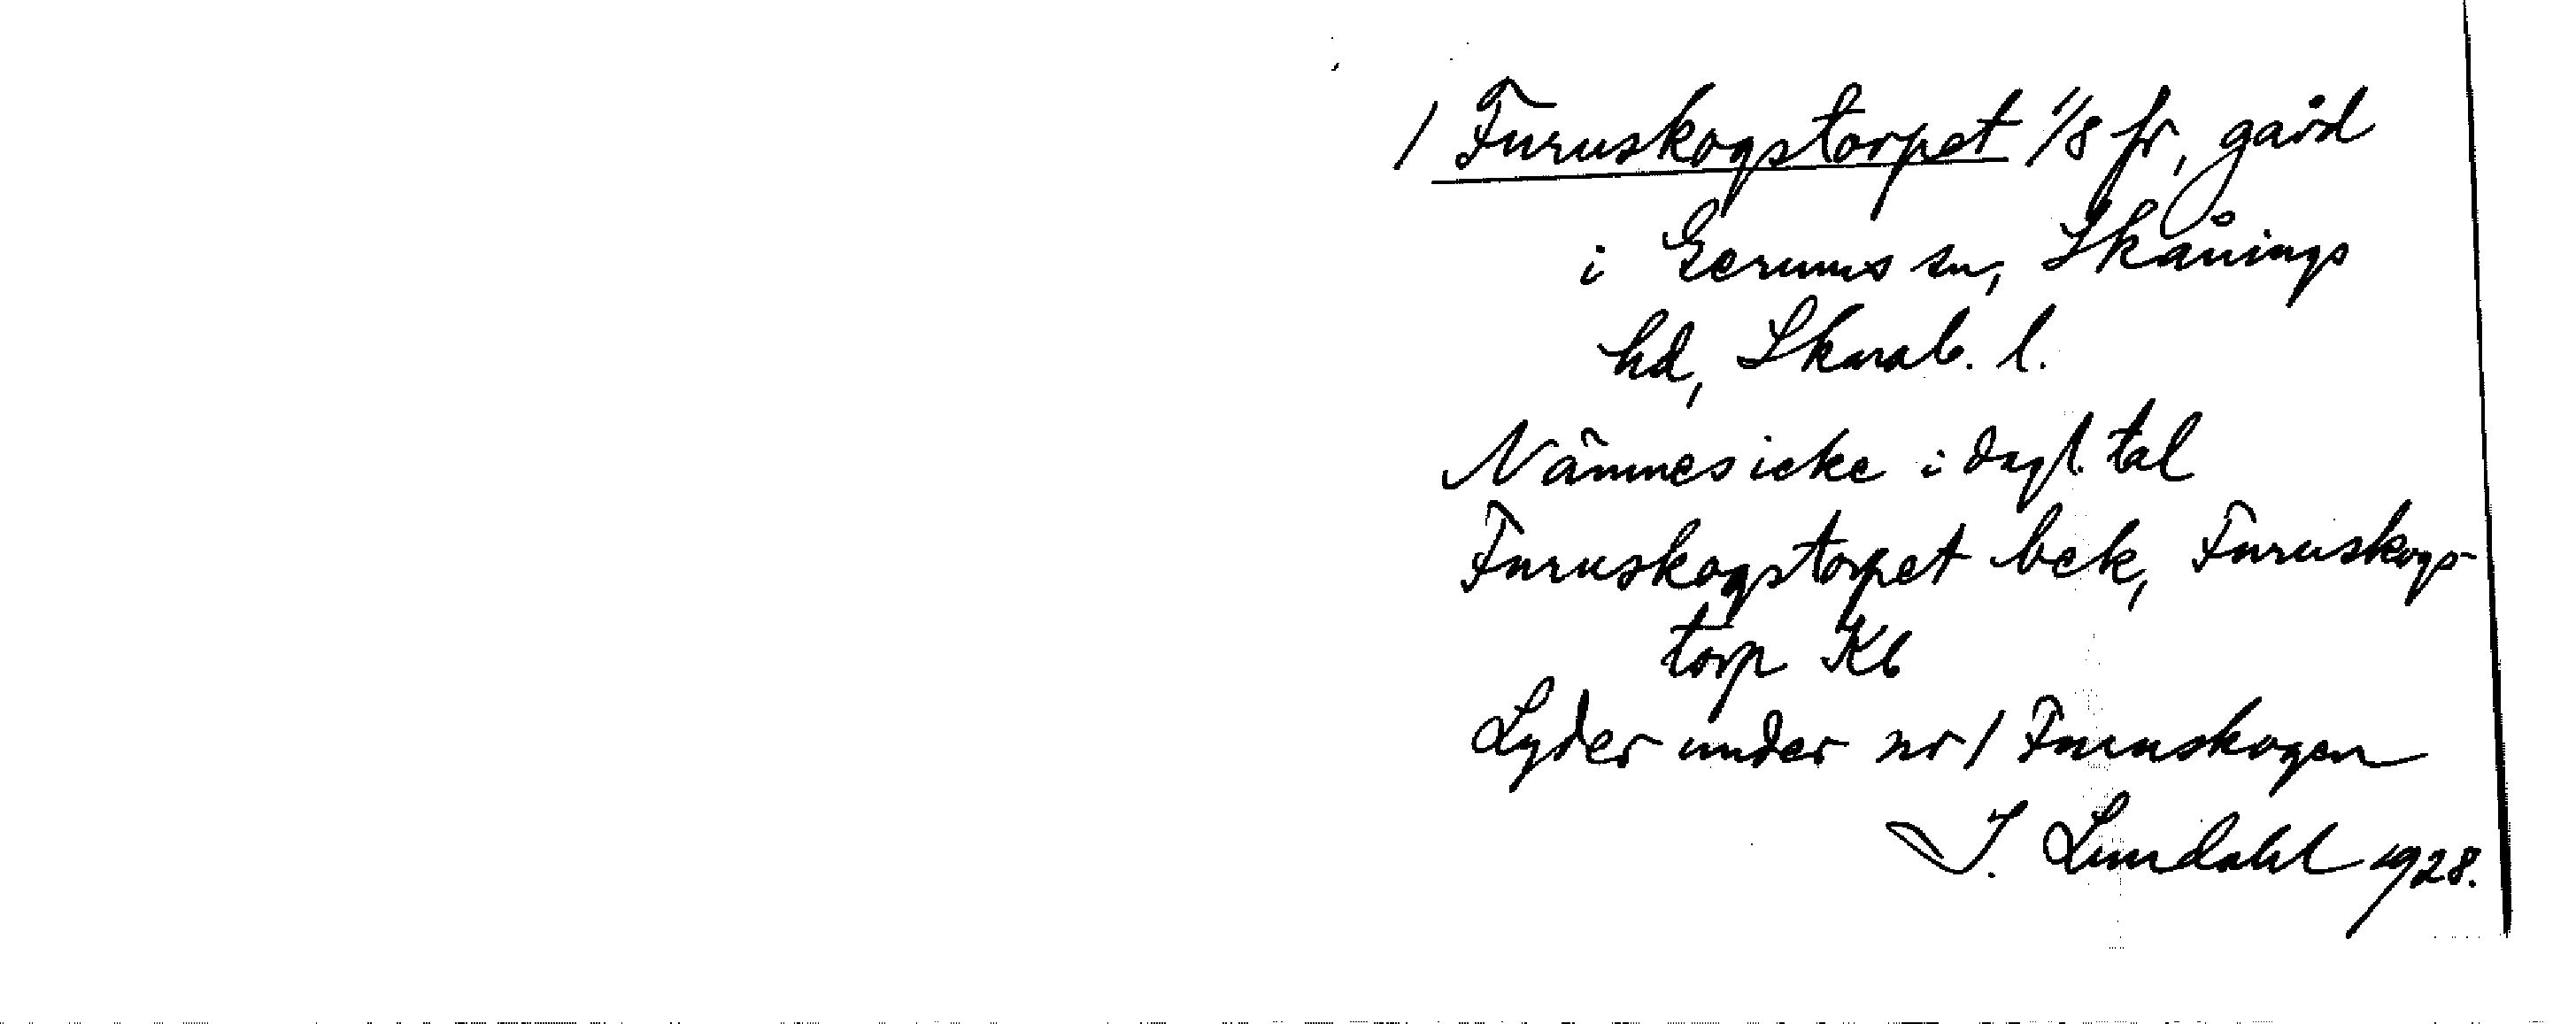 1 Furuskogstorpet 1/8 fr, gård
i Gerums sn, Skånings
hd, Skarab. l.
Nämnes icke i dagl. tal
Furuskogstorpet bek, Furuskogs-
torp Kb
Lyder under nr 1 Furuskogen
I. Lundahl 1928.